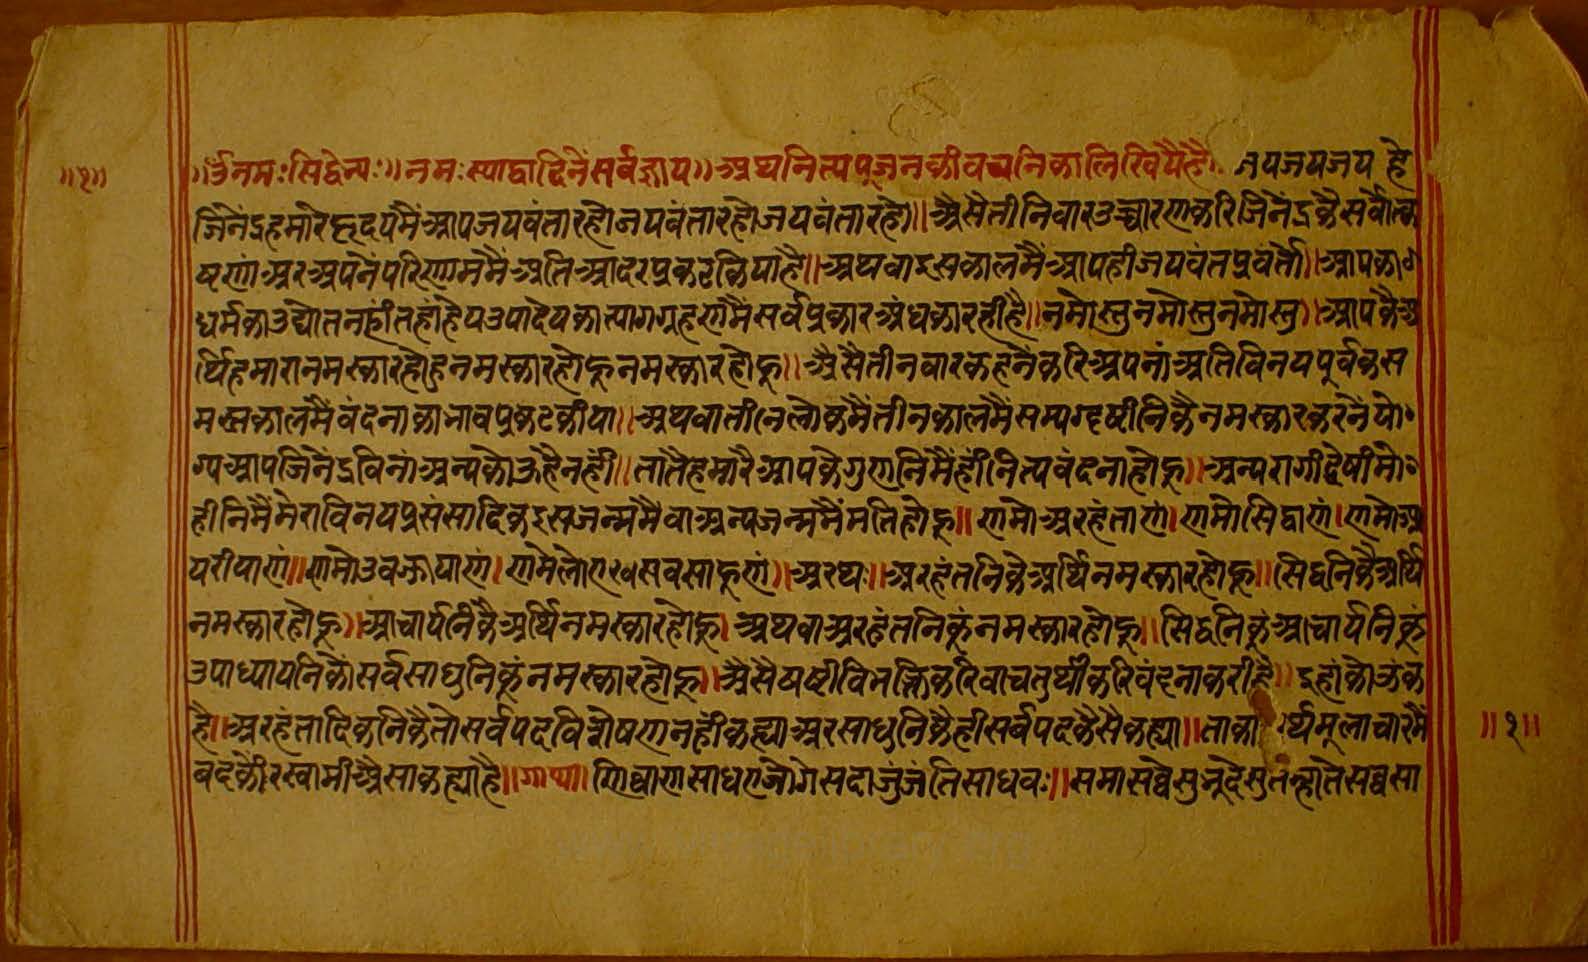 ॥१॥
॥ॐनमःसिद्धेभ्यः॥नमःस्याद्वादिनेंसर्वज्ञाय॥अथनित्यपूजनकीवचनिकालिखियेहै॥ जयजयजय हे
जिनेंद्रहमारेहृदयमैंआपजयवंतारहोजयवंतारहोजयवंतारहो॥अैसैतीनिवारउच्चारणकरिजिनेंद्रकैसर्वोत्क
षणांअरअपनेंपरिणाममैंअतिआदरप्रकटकियाहै॥अथवाइसकालमैंआपहीजयवंतप्रवर्तो॥आपका
धर्मकाउद्योतनहींतहांहेयउपादेयकात्यागग्रहणमैंसर्वप्रकारअंधकारहीहै॥नमोस्तुनमोस्तुनमोस्तु॥आपकैअ
र्थिहमारानमस्कारहोहुनमस्कारहोहूनमस्कारहोहू॥अैसैतीनवारकहनैकरिअपनांअतिविनयपूर्वकस
मस्तकालमैंवंदनाकाभावप्रकटकीया॥अथवातीनलोकमैंतीनकालमैंसम्यग्दृष्टीनिकैनमस्कारकरनेंयो
ग्यआपजिनेंद्रविनांअन्यकोऊहैनहीं॥तातैहमारैआपकेगुणनिमैंहींनित्यवंदनाहोहू॥अन्यरागीद्वेषीमो
हीनिमैंमेराविनयप्रसंसादिकइसजन्ममैंवाअन्यजन्ममैंमतिहोहू॥णमोअरहंताणं।णमोसिद्धाणं।णमोआ
यरीयाणं॥णमोउवज्झायाणं।णमोलोएसवसाहूणं॥अरथः॥अरहंतनिकेअर्थिनमस्कारहोहू॥सिद्धनिकैअर्थि
नमस्कारहोहू॥आचार्यनिकैअर्थिनमस्कारहोहू।अथवाअरहंतनिकूंनमस्कारहोहू॥सिद्धनिकूंआचार्यनिकूं
उपाध्यायनिकौंसर्वसाधुनिकूंनमस्कारहोहू॥अैसैषष्टीविभक्तिकरिवाचतुर्थीकरिवंदनाकरीहै॥इहांकोऊक
है॥अरहंतादिकनिकैतोसर्वपदविशेषणनहींकह्याअरसाधुनिकैहीसर्वपदकैसैकह्या॥ताका र्थमूलाचारमैं
॥१॥
बटकेरस्वामीअैसाकह्याहै॥गाथा।णिव्वाणसाधएजोगेसदाजुंजंतिसाधवः॥समासव्वेसुभूदेसुतम्हातेसव्वसा